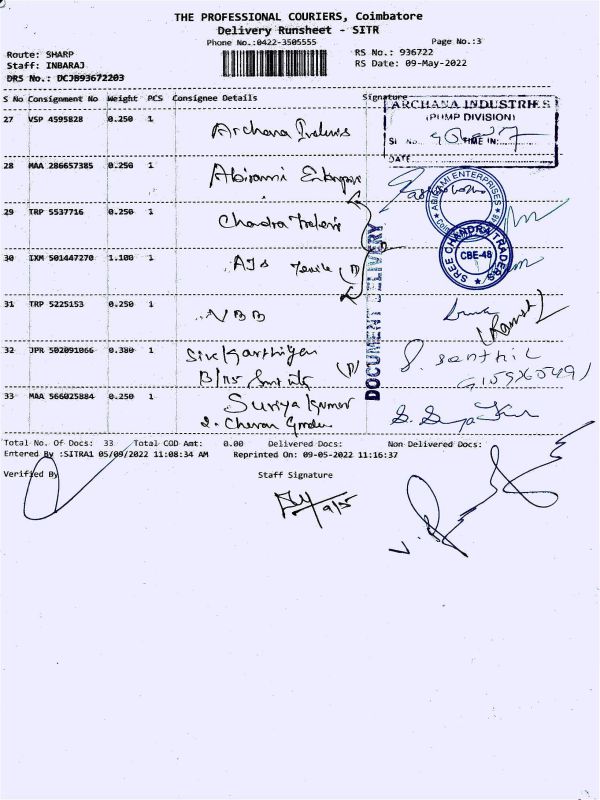 THE PROFESSIONAL COURIERS, Coimbatore
Delivery Runsheet - SITR
Phone No.:0422-3505555 Page No.:3
Route: SHARP RS No.: 936722
Staff: INBARAJ RS Date: 09-May-2022
DRS No.: DCJB93672203
S No Consignment No Weight PCS Consignee Details Signature
ARCHANA INDUSTRIES
(PUMP DIVISION)
27 VSP 4595828 0.250 1 Archana
Sl No. TIME IN:
DATE
28 MAA 286657385 0.250 1 Abirami
ABIRAMI ENTERPRISES
29 TRP 5537716 0.250 1 Chandra
SREE CHANDRA TRADERS
CBE-48
30 IXM 501447270 1.100 1 AJS
DOCUMENT DELIVERY
31 TRP 5225153 0.250 1 NBB
Ramesh
32 JPR 502091066 0.380 1 Sivakarthigen
S. Senthil
33 MAA 566025884 0.250 1 Suriya Kumar
2. Cheran
Total No. Of Docs: 33 Total COD Amt: 0.00 Delivered Docs: Non Delivered Docs:
Entered By :SITRA1 05/09/2022 11:08:34 AM Reprinted On: 09-05-2022 11:16:37
Verified By Staff Signature
9/5